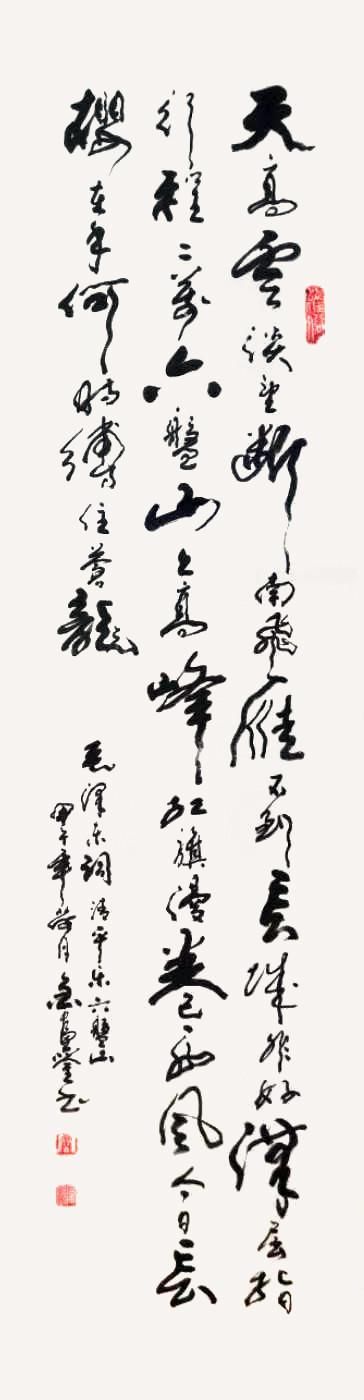 天高雲淡望斷南飛雁不到長城非好漢屈指
行程二萬六盤山上高峰紅旗漫卷西風今日長
纓在手何時縛住蒼龍
毛澤東詞清平樂六盤山
甲午年荷月